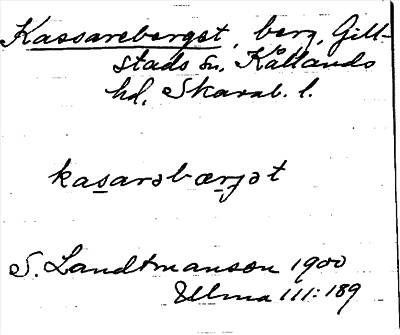 Kassareberget, berg, Gill-
stads sn, Kållands
hd, Skarab. l.
kasarəbærjət
S. Landtmanson 1900
Ulma 111:189